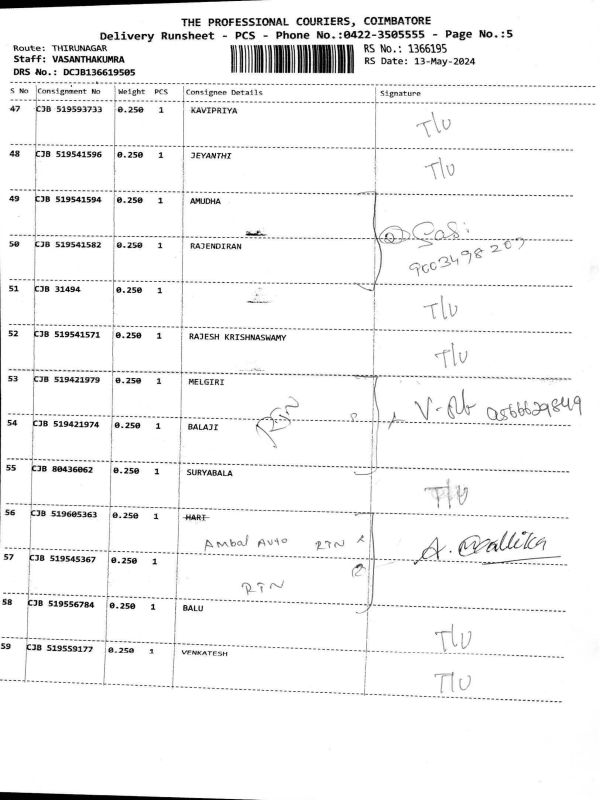 THE PROFESSIONAL COURIERS, COIMBATORE
Delivery Runsheet - PCS - Phone No.:0422-3505555 - Page No.:5
Route: THIRUNAGAR RS No.: 1366195
Staff: VASANTHAKUMRA RS Date: 13-May-2024
DRS No.: DCJB136619505
S No Consignment No Weight PCS Consignee Details Signature
47 CJB 519593733 0.250 1 KAVIPRIYA T/U
48 CJB 519541596 0.250 1 JEYANTHI T/U
49 CJB 519541594 0.250 1 AMUDHA
50 CJB 519541582 0.250 1 RAJENDIRAN
51 CJB 31494 0.250 1 T/U
52 CJB 519541571 0.250 1 RAJESH KRISHNASWAMY T/U
53 CJB 519421979 0.250 1 MELGIRI
54 CJB 519421974 0.250 1 BALAJI
55 CJB 80436062 0.250 1 SURYABALA T/U
56 CJB 519605363 0.250 1 HARI
Ambal Auto RTN A. Mallika
57 CJB 519545367 0.250 1
RTN
58 CJB 519556784 0.250 1 BALU T/U
59 CJB 519559177 0.250 1 VENKATESH T/U